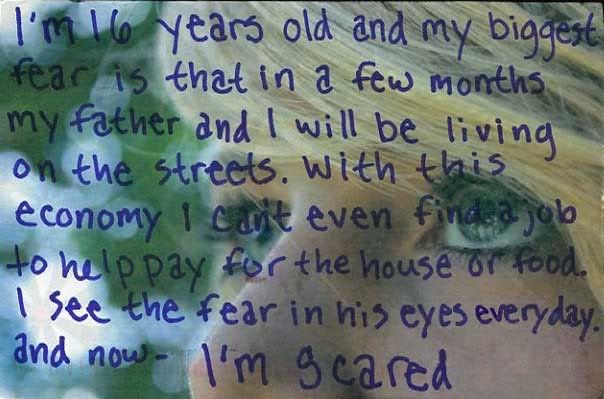 I'm 16 years old and my biggest
fear is that in a few months
my father and I will be living
on the streets. With this
economy I can't even find a job
to help pay for the house or food.
I see the fear in his eyes everyday.
and now- I'm scared